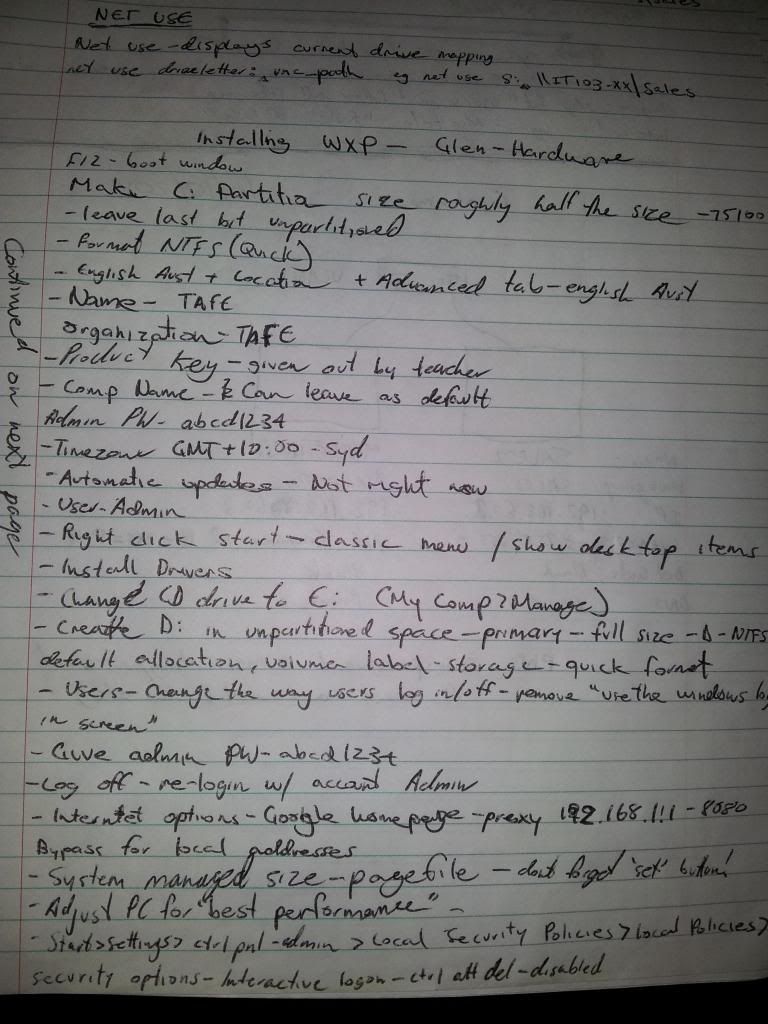 NET USE
Net use - displays current drive mapping
net use driveletter: unc_path eg net use S: \\IT103-xx\Sales
Installing WXP - Glen - Hardware
F12 - boot window
Make C: Partitio size roughly half the size - 75100
- leave last bit unpartitioned
- Format NTFS (Quick)
- English Aust + Location + Advanced tab - english Aust
- Name - TAFE
organization - TAFE
- Product Key - given out by teacher
- Comp Name - Can leave as default
Admin PW - abcd1234
- Timezone GMT+10:00 - Syd
- Automatic updates - Not right now
- User - Admin
- Right click start - classic menu / show desktop items
- Install Drivers
- Change CD drive to E: (My Comp > Manage)
- Create D: in unpartitioned space - primary - full size - D - NTFS
default allocation, volume label - storage - quick format
- Users - Change the way users log in/off - remove "use the windows
in screen"
- Give admin PW - abcd1234
- Log off - re-login w/ account Admin
- Internet options - Google homepage - proxy 192.168.1.1 - 8080
Bypass for local addresses
- System managed size - pagefile - dont forget 'set' button!
- Adjust PC for "best performance" -
- Start > settings > ctrl pnl - admin > Local Security Policies > Local Policies >
security options - Interactive logon - ctrl alt del - disabled
Continued on next page